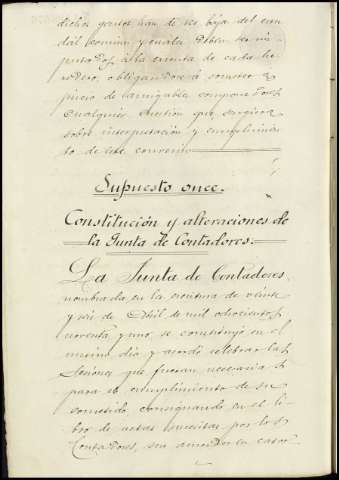 dichos gastos han de ser baja del cau-
dal comun y cuales deben ser im-
putados á la cuenta de cada he-
redero, obligandose á someter a
juicio de amigables componedores
cualquier cuestion que surgiera
sobre interpretación y cumplimien-
to de este convenio
Supuesto once.
Constitución y alteraciones de
la Junta de Contadores.
La Junta de Contadores
nombrada en la escritura de veinte
y seis de Abril de mil ochocientos
noventa y uno, se constituyó en el
mismo dia y acordó celebrar las
sesiones que fueran necesarias
para el cumplimiento de su
cometido, consignando en el li-
bro de actas suscritas por los
Contadores, sus acuerdos